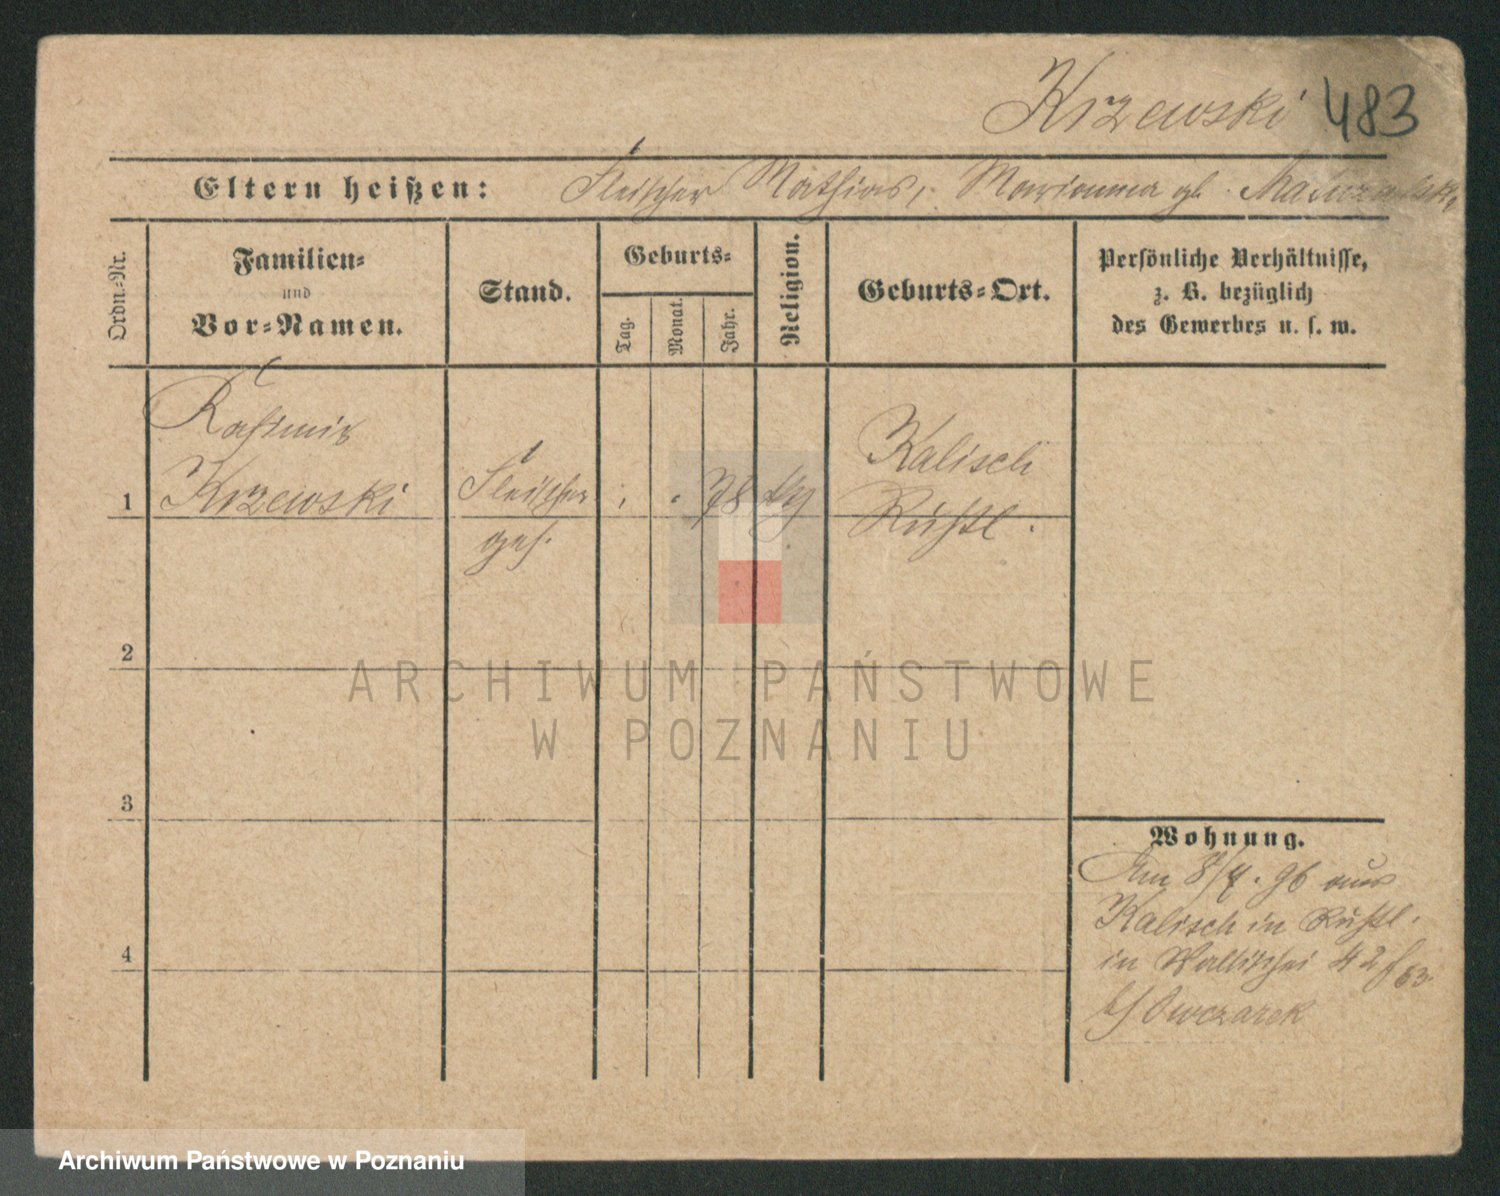 Krzewski 483
Eltern heißen: Fleischer Mathias, Marianna gb.
Ordn.-Nr.
Familien-
und
Vor-Namen.
Stand.
Geburts-
Tag.
Monat.
Jahr.
Religion.
Geburts-Ort.
Persönliche Verhältnisse,
z. B. bezüglich
des Gewerbes u. s. w.
Kasimir
1 Krzewski Fleischer 78 Kalisch
ges. Rußl.
2
3
4
Wohnung.
Am 8/7. 96 aus
Kalisch in Rußl.
in Wallischei 42
b/ Owczarek
ARCHIWUM PAŃSTWOWE
W POZNANIU
Archiwum Państwowe w Poznaniu